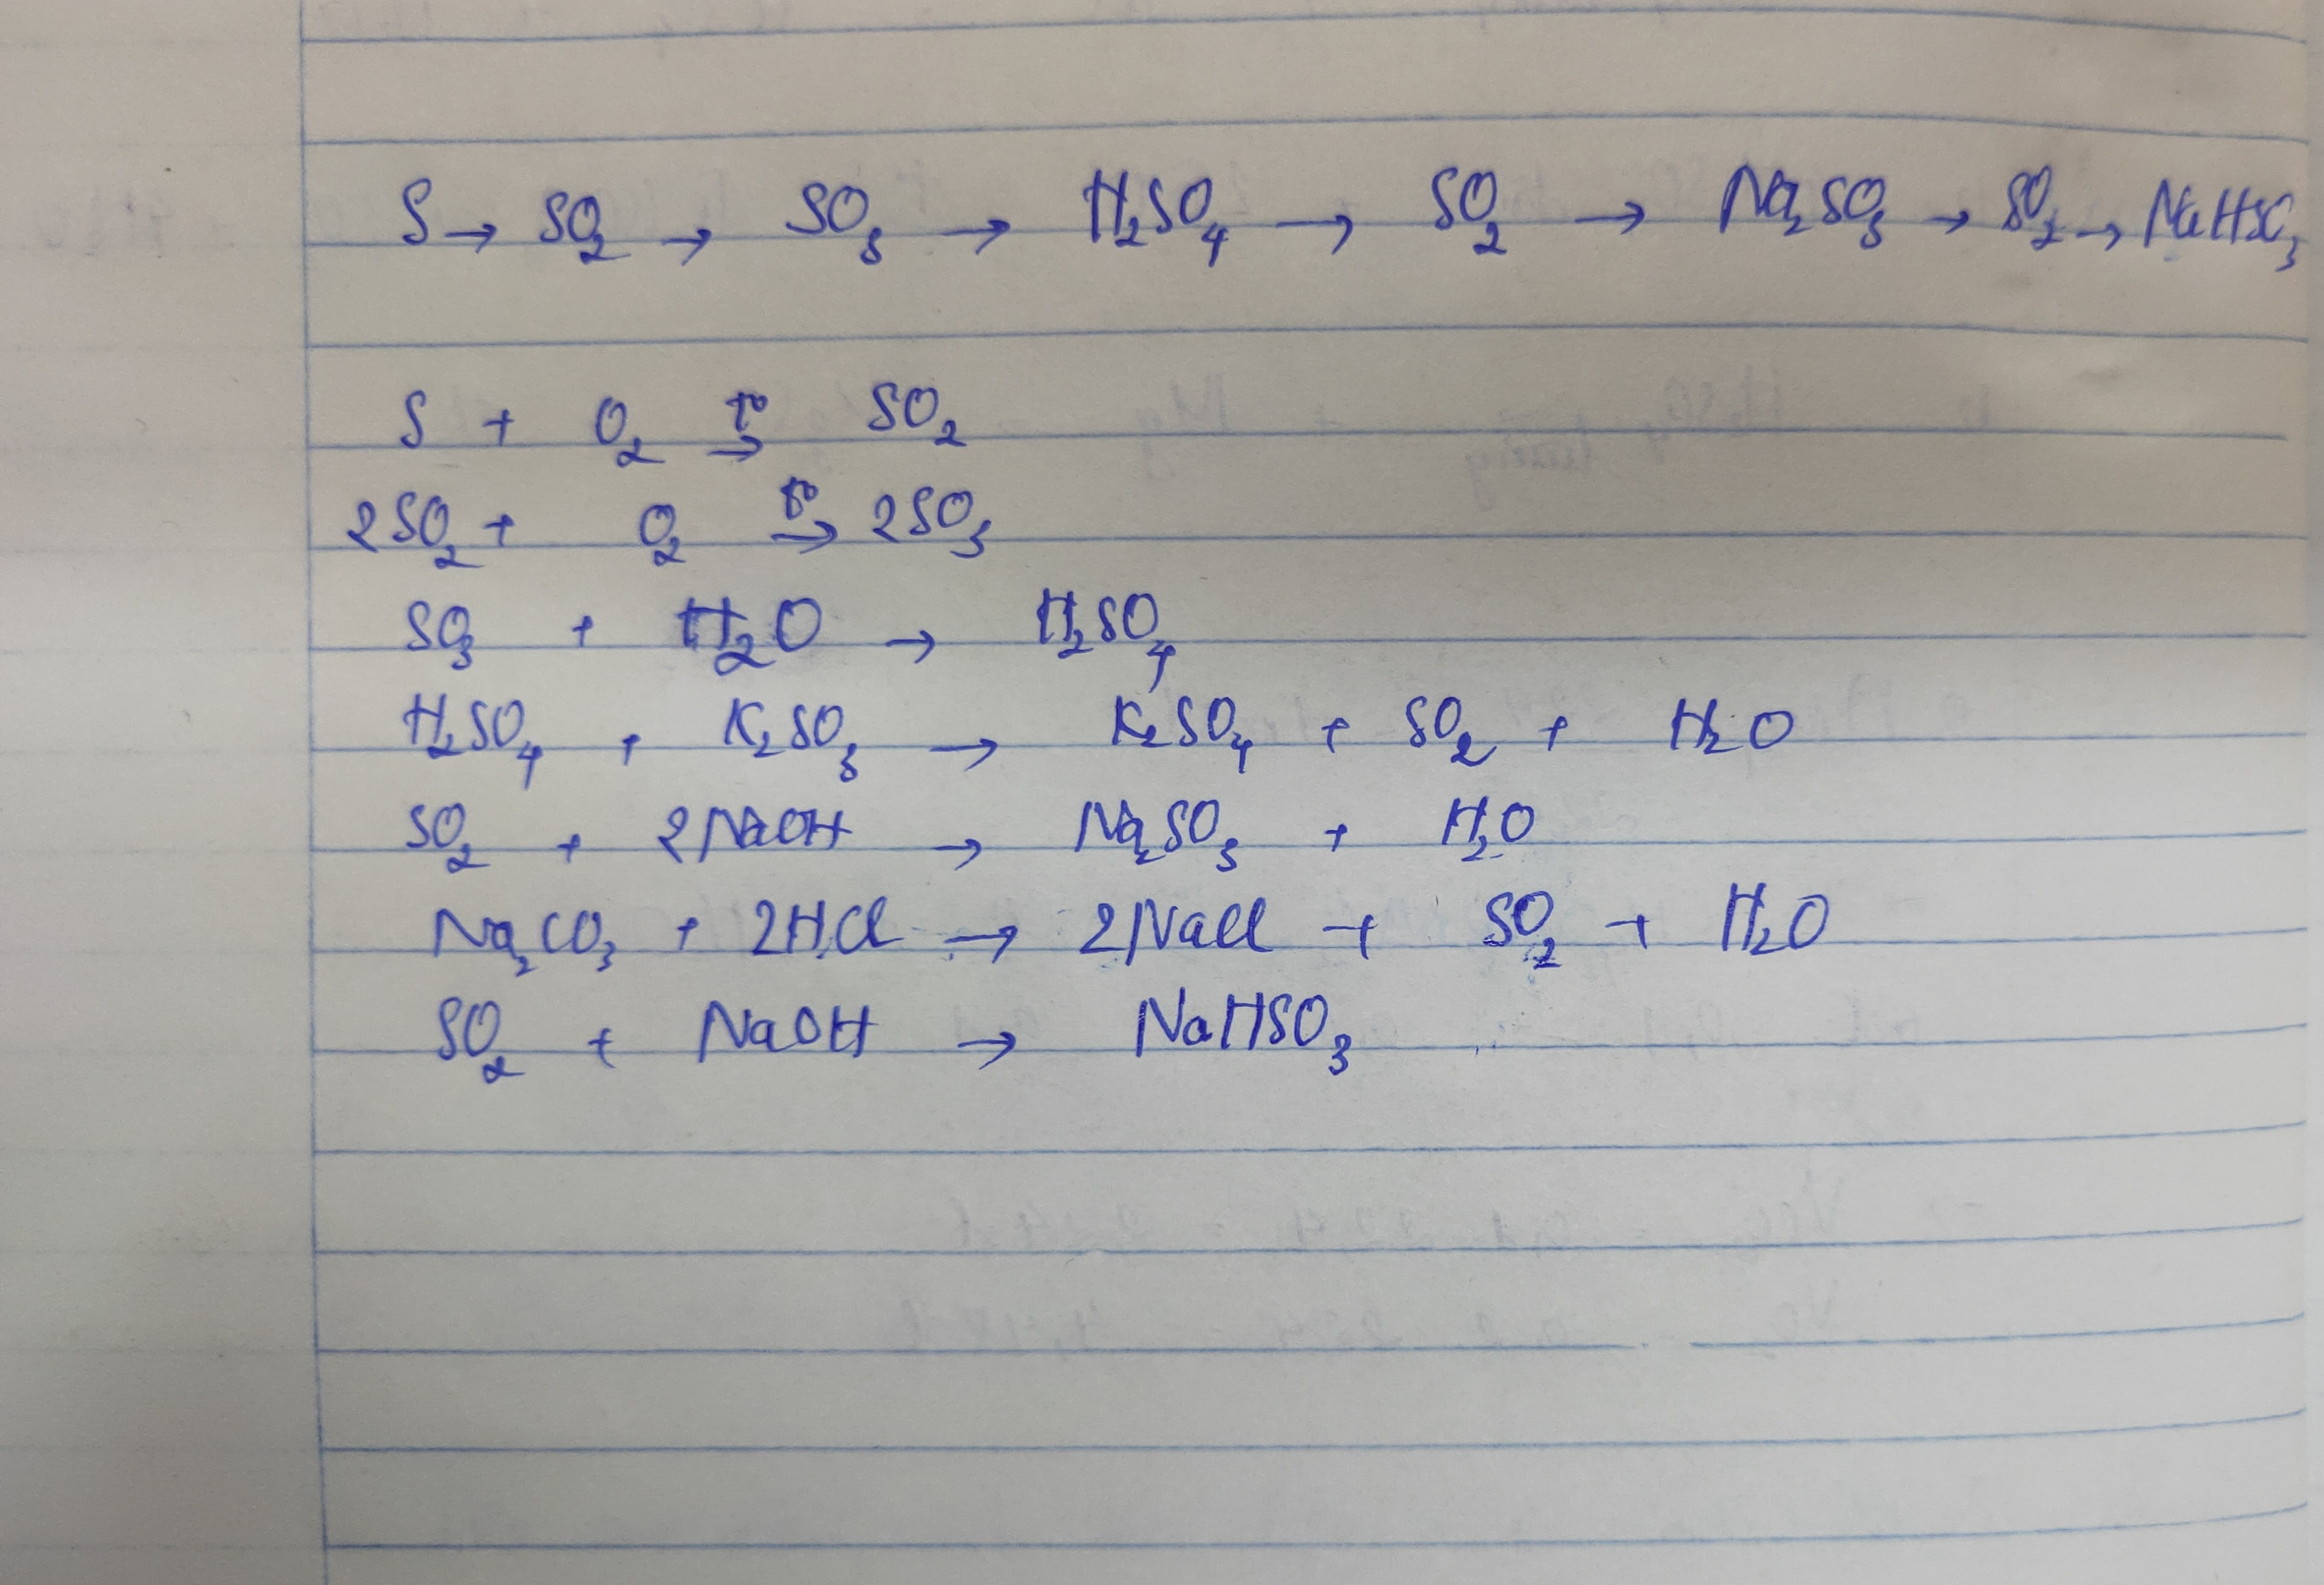 S → SO₂ → SO₃ → H₂SO₄ → SO₂ → Na₂SO₃ → SO₂ → NaHSO₃
S + O₂ →(t°) SO₂
2SO₂ + O₂ →(t°) 2SO₃
SO₃ + H₂O → H₂SO₄
H₂SO₄ + K₂SO₃ → K₂SO₄ + SO₂ + H₂O
SO₂ + 2NaOH → Na₂SO₃ + H₂O
Na₂CO₃ + 2HCl → 2NaCl + SO₂ + H₂O
SO₂ + NaOH → NaHSO₃